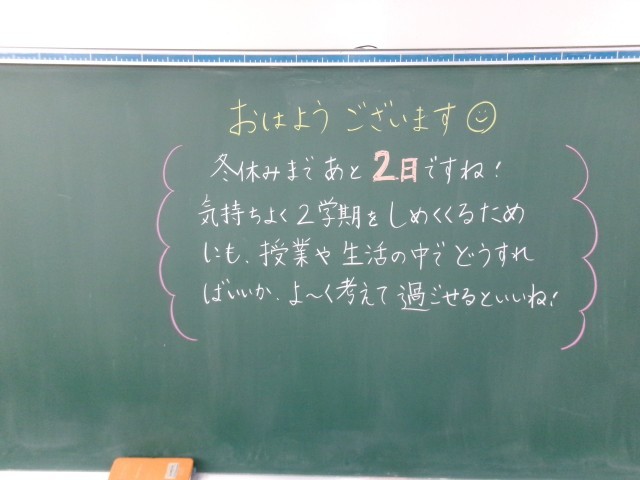 おはようございます
冬休みまであと2日ですね!
気持ちよく2学期をしめくくるため
にも、授業や生活の中でどうすれ
ばいいか、よ~く考えて過ごせるといいね!